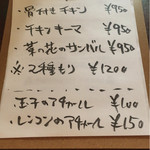 骨付きチキン ¥950
チキンキーマ ¥950
菜の花のサンバル ¥950
※2種もり ¥1200
玉子のアチャール ¥100
レンコンのアチャール ¥150